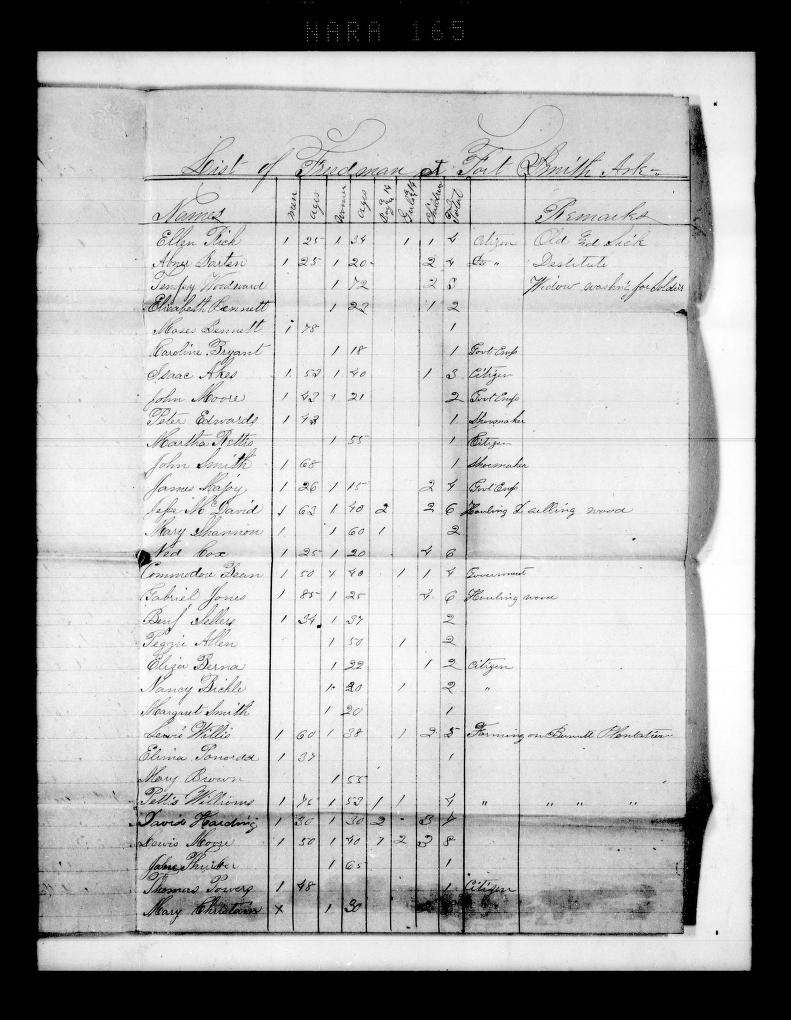 NARA 165
List of Freedman at Fort Smith Ark
Names men ages women ages Boys 14 Girls 14 Children Total Remarks
Ellen Rich 1 25 1 34 1 1 4 Citizen Old And Sick
Abner Barten 1 25 1 20 2 4 do " Destitute
Tempy Woodward 1 72 2 3 Widow washing for Soldiers
Elizabeth Bennett 1 22 1 2
Moses Bennett 1 78 1
Caroline Bryant 1 18 1 Govt Emp
Isaac Akes 1 53 1 40 1 3 Citizen
John Moore 1 43 1 21 2 Govt Emp
Peter Edwards 1 43 1 Shoemaker
Martha Pettis 1 55 1 Citizen
John Smith 1 68 1 Shoemaker
James 1 26 1 15 2 4 Govt Emp
McDavid 1 63 1 40 2 2 6 Hauling & selling wood
Mary Shannon 1 1 60 1 2
Ned Cox 1 25 1 20 4 6
Commodore Bean 1 50 1 40 1 1 4 Government
Gabriel Jones 1 85 1 25 4 6 Hauling wood
Benj Sellers 1 34 1 37 2
Peggie Allen 1 50 1 2
Eliza Berna 1 22 1 2 Citizen
Nancy Bickle 1 20 1 2 "
Margaret Smith 1 20 1
Lewis Willis 1 60 1 38 1 2 5 Farming on Barnett Plantation
Elima 1 37 1
Mary Brown 1 55
Pettis Williams 1 75 1 53 1 1 4 " " " "
David Harding 1 30 1 30 2 3 7
Lewis Moore 1 50 1 40 1 2 3 8
Jane 1 65 1
Thomas Powers 1 48 1 Citizen
Mary Christain x 1 30